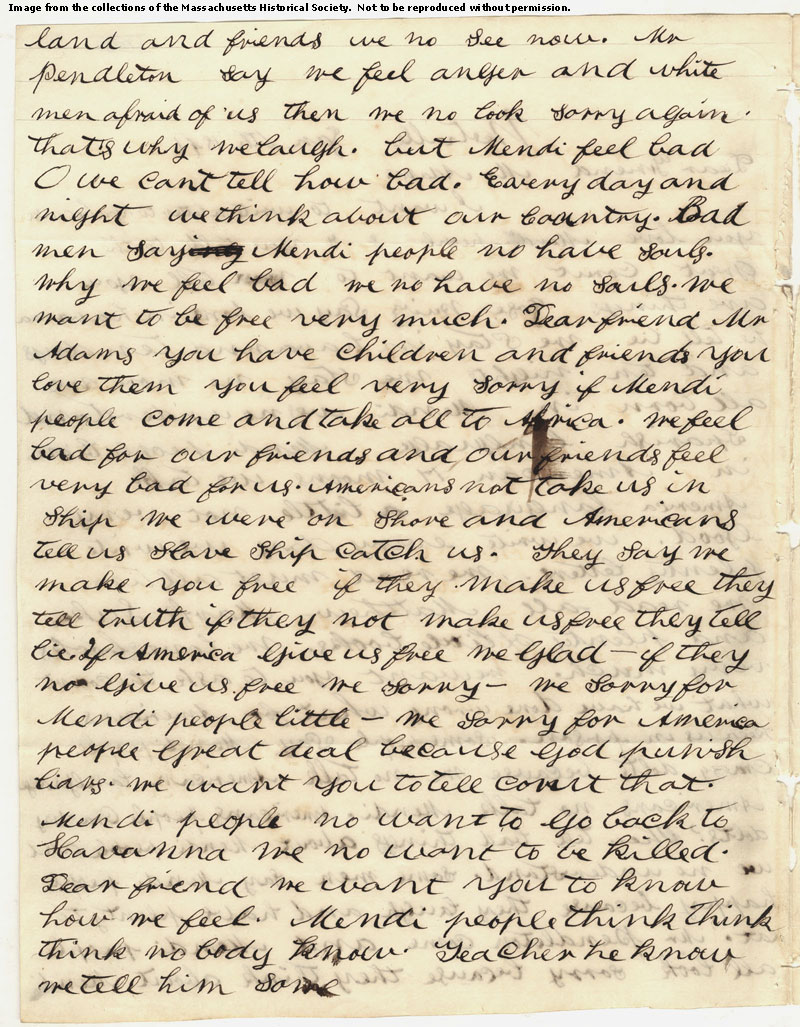 Image from the collections of the Massachusetts Historical Society. Not to be reproduced without permission.
land and friends we no see now. Mr
Pendleton say we feel anger and white
men afraid of us then we no look sorry again.
that's why we laugh. but Mendi feel bad
O we cant tell how bad. Every day and
night we think about our country. Bad
men say Mendi people no have souls.
why we feel bad we no have no souls. we
want to be free very much. Dear friend Mr
Adams you have children and friends you
love them you feel very sorry if Mendi
people come and take all to Africa. we feel
bad for our friends and our friends feel
very bad for us. Americans not take us in
ship we were on shore and Americans
tell us slave ship catch us. They say we
make you free if they make us free they
tell truth if they not make us free they tell
lie. If America give us free we Glad – if they
no give us free we sorry – we sorry for
Mendi people little – we sorry for America
people Great deal because God punish
liars. we want you to tell court that.
Mendi people no want to go back to
Havanna we no want to be killed.
Dear friend we want you to know
how we feel. Mendi people think think
think no body know. Teacher he know
we tell him some